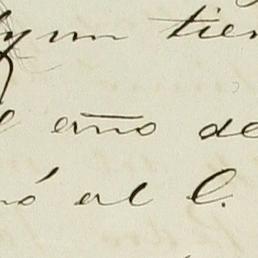 algun tien
el año de
nó al C.